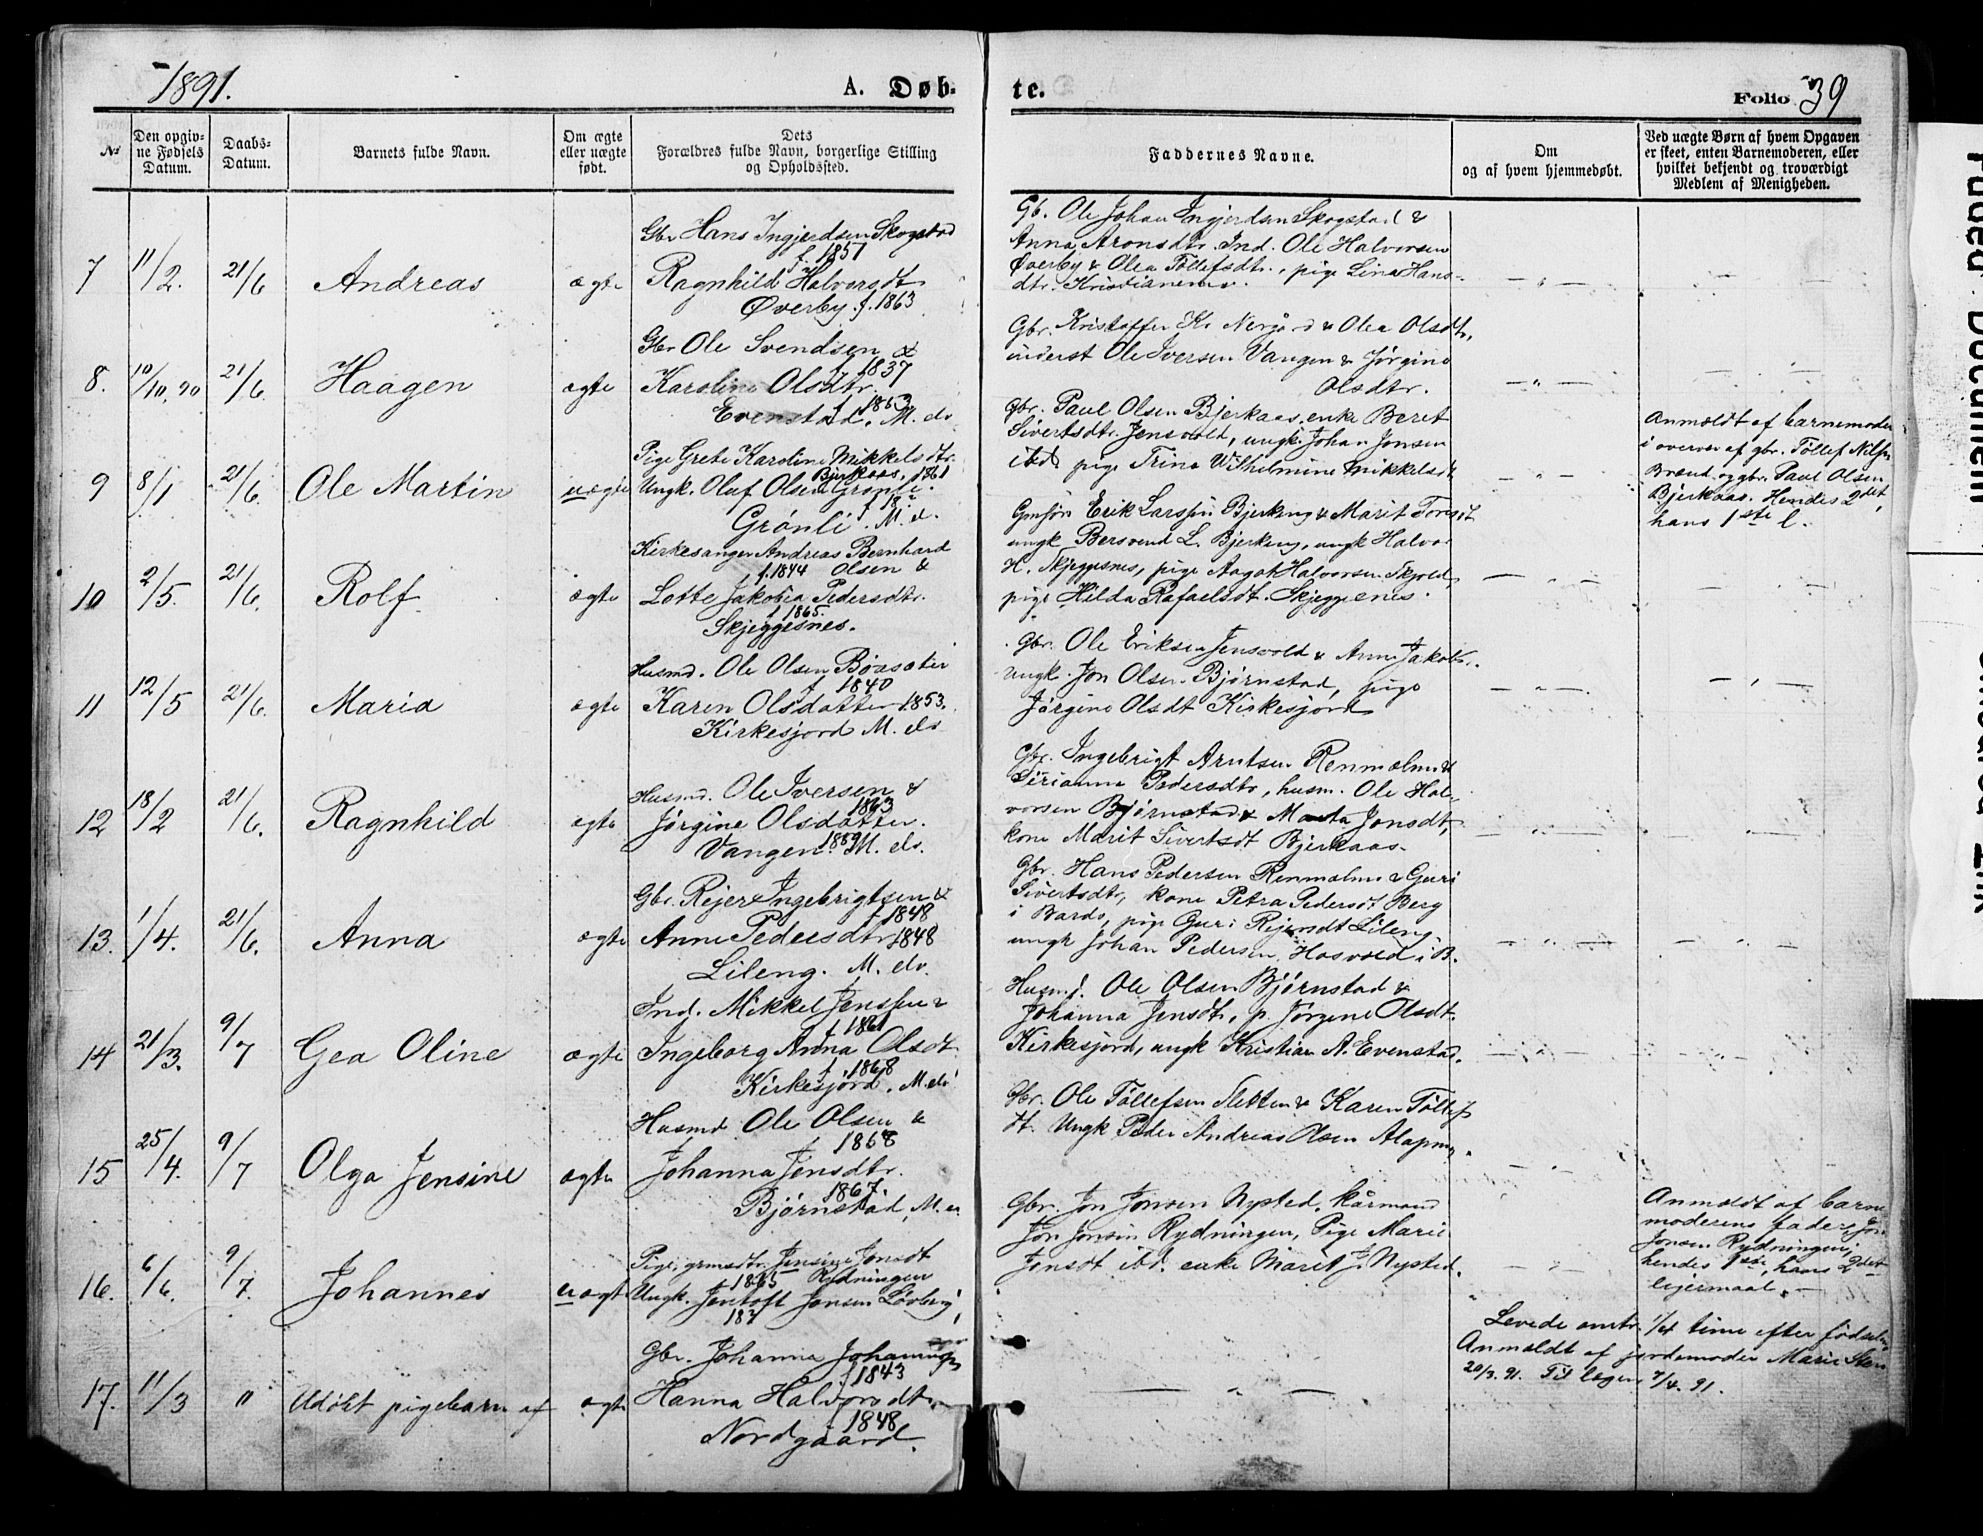 1891.
A. Døb-
te.
Folio 39
№
Den opgiv-
ne Fødsels
Datum.
Daabs-
Datum.
Barnets fulde Navn.
Om ægte
eller uægte
født.
Dets
Forældres fulde Navn, borgerlige Stilling
og Opholdssted.
Faddernes Navne.
Om
og af hvem hjemmedøbt.
Ved uægte Børn af hvem Opgaven
er skeet, enten Barnemoderen, eller
hvilket bekjendt og troværdigt
Medlem af Menigheden.
7
11/2.
21/6
Andreas
ægte
Gbr Hans Ingjerdsen Skogstad
f. 1857
Ragnhild Halvorsdt
Øverby. f. 1863
Gb. Ole Johan Ingjerdsen Skogstad &
Anna Aronsdtr. Ind. Ole Halvorsen
Øverby & Olea Tollefsdtr., pige Lina Hans-
dtr.
8.
10/10, 90
21/6.
Haagen
ægte
Gbr Ole Svendsen &
1837
Karoline Olsdtr.
1863
Evenstad. M. elv
Gbr. Kristoffer Kr. Nergård & Olea Olsdtr,
inderst Ole Iversen Vangen & Jørgine
Olsdtr.
9
8/1
21/6.
Ole Martin
uægte
Pige Grete Karoline Mikkelsdtr.
Bjerkaas. 1861
Ungk. Oluf Olsen Grønli.
Grønli. M. e.
Gbr. Paul Olsen Bjerkaas, enke Beret
Sivertsdtr. Jensvold, ungk. Johan Jonsen
ibd. pige Trine Wilhelmine Mikkelsdt
Anmældt af barnemoder
i overvær af gbr. Tollef Nilss.
Brand. og gbr. Paul Olsen
Bjerkaas. Hendes 2det,
hans 1ste l.
10
2/5.
21/6.
Rolf.
ægte
Kirkesanger Andreas Bernhard
f. 1844 Olsen &
Lotte Jakobea Pedersdtr.
f 1865.
Skjeggesnes.
Gmsøn Erik Larssen Bjerkeng & Marit Toresdt
ungk Bersvend L. Bjerkeng, ungk Halvor
H. Skjeggesnes, pige Aagot Halvorsen Skjold,
pige Hilda Rafaelsdt. Skjeggenes.
11
12/5
21/6.
Maria
ægte
Husmd. Ole Olsen Bøsæter
1840
Karen Olsdatter 1853.
Kirkesjord M. elv
Gbr. Ole Eriksen Jensvold & Anne Jakobs.
ungk. Jon Olsen Bjørnstad, pige
Jørgine Olsdt Kirkesjord
12
18/2
21/6.
Ragnhild
ægte
Husmd. Ole Iversen &
1863
Jørgine Olsdatter.
Vangen. 1859 M. elv.
Gbr. Ingebrigt Arntsen Renmælmo &
Sirianna Pedersdtr, husm. Ole Hal-
vorsen Bjørnstad & Marta Jonsdt,
kone Marit Sivertsdt Bjerkaas.
13.
1/4.
21/6.
Anna
ægte
Gbr. Rejer Ingebrigtsen &
f 1848
Anne Pedersdtr 1848
Lileng. M. elv.
Gbr. Hans Pedersen Renmælmo & Guri
Sivertsdtr, kone Petra Pedersdt Berg
i Bardo, pige Guri Rejersdt Lileng
ungk Johan Pedersen i B.
14
21/3.
9/7
Gea Oline
ægte
Ind. Mikkel Jenssen &
f 1861
Ingeborg Anna Olsdt.
f 1868
Kirkesjord. M. elv
Husmd. Ole Olsen Bjørnstad &
Johanna Jensdt, p. Jørgine Olsdt.
Kirkesjord, ungk Kristian A. Evenstad.
15
25/4.
9/7
Olga Jensine
ægte
Husmd Ole Olsen &
1868
Johanna Jensdtr.
1867.
Bjørnstad, M. e.
Gbr. Ole Tollefsen Sletten & Karen Tollefs
dt. Ungk Peder Andreas Olsen
16.
6/6.
9/7.
Johannes
uægt
Pige, Jensine Jonsdt
1865 Rydningen
Ungk. Jentoft Jonsen Løvberg,
Gbr. Jon Jonsen Nysted, kårmand
Jon Jonsen Rydningen, Pige Marie
Jonsdt ibd. enke Marit J. Nysted.
Anmældt af barne
moderens fader Jon
Jonsen Rydningen,
hendes 1ste, hans 2det
lejermaal.
17.
11/3
"
Udøbt pigebarn af
ægte
Gbr. Johannes
f 1843
Hanna Halvorsdt.
f 1848
Nordgaard.
Levede omtr. 1/4 time efter fødselen
Anmældt af jordemoder Marie Steen
20/3. 91. Til lægen 7/4. 91.